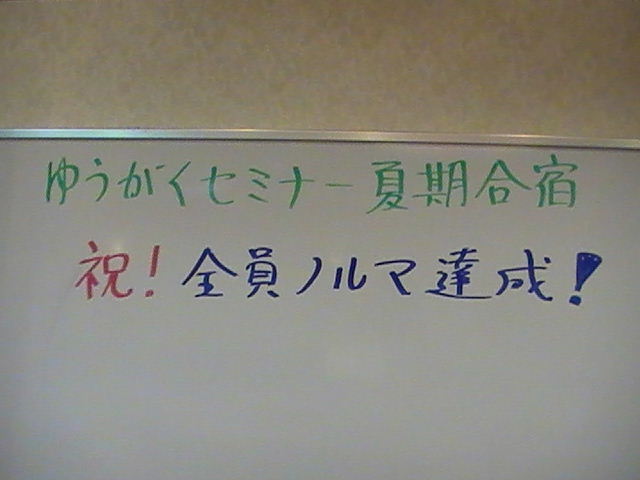 ゆうがくセミナー夏期合宿
祝！全員ノルマ達成！